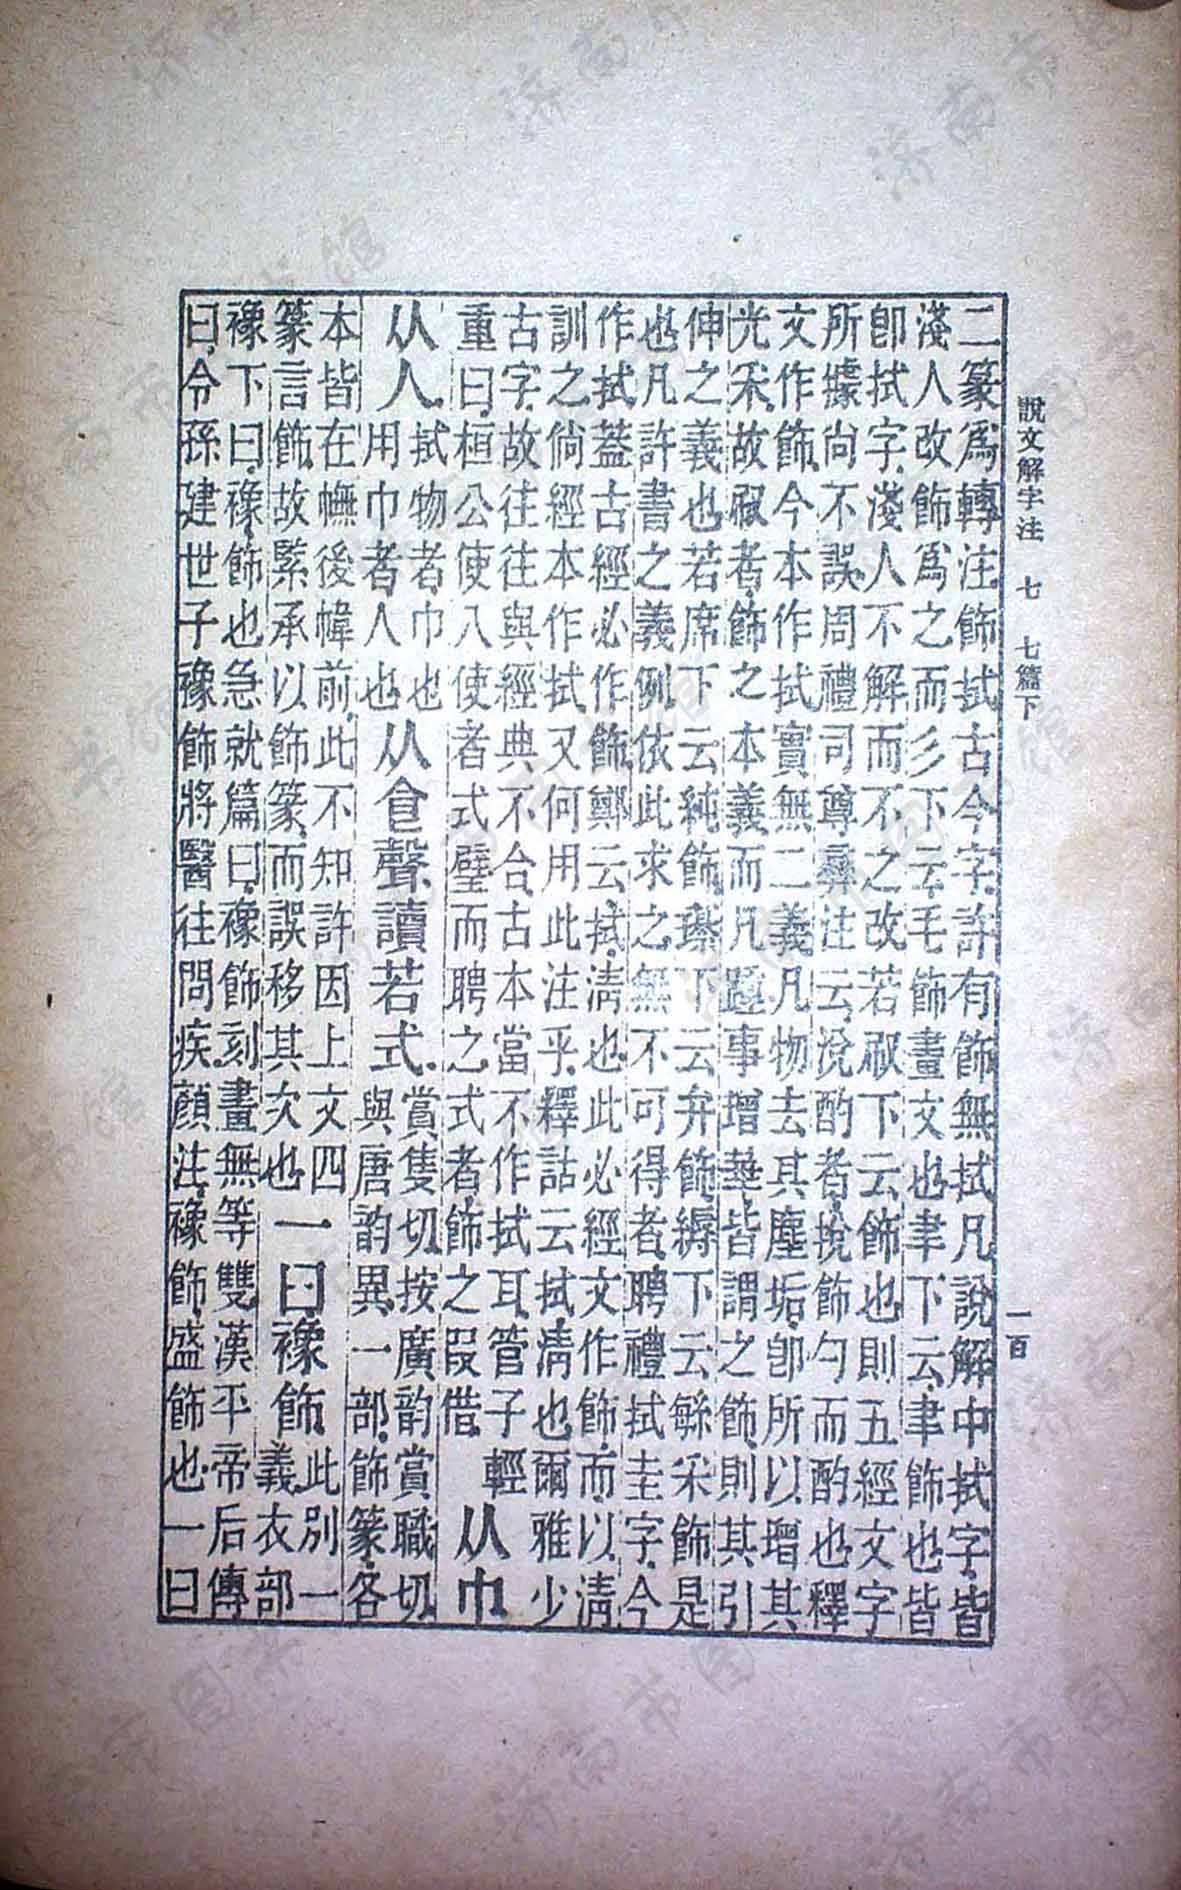 說文解字注 七 七篇下
一百
二篆爲轉注飾拭古今字許有飾無拭凡說解中拭字皆
淺人改飾爲之而彡下云毛飾畫文也聿下云聿飾也皆
卽拭字淺人不解而不之改若㕞下云飾也則五經文字
所據尙不誤周禮司尊彝注云涚酌者捝飾勺而酌也釋
文作飾今本作拭實無二義凡物去其塵垢卽所以增其
光采故㕞者飾之本義而凡踵事增華皆謂之飾則其引
伸之義也若席下云純飾璪下云弁飾縟下云緐采飾是
也凡許書之義例依此求之無不可得者聘禮拭圭字今
作拭葢古經必作飾鄭云拭淸也此必經文作飾而以淸
訓之倘經本作拭又何用此注乎釋詁云拭淸也爾雅少
古字故往往與經典不合古本當不作拭耳管子輕
重曰桓公使八使者式璧而聘之式者飾之叚借
从巾
从人
拭物者巾也
用巾者人也
从食聲讀若式
賞隻切按廣韵賞職切
與唐韵異一部飾篆各
本皆在幠後幃前此不知許因上文四
篆言飾故繫承以飾篆而誤移其次也
一曰襐飾
此別一
義衣部
襐下曰襐飾也急就篇曰襐飾刻畫無等雙漢平帝后傳
曰令孫建世子襐飾將醫往問疾顏注襐飾盛飾也一曰